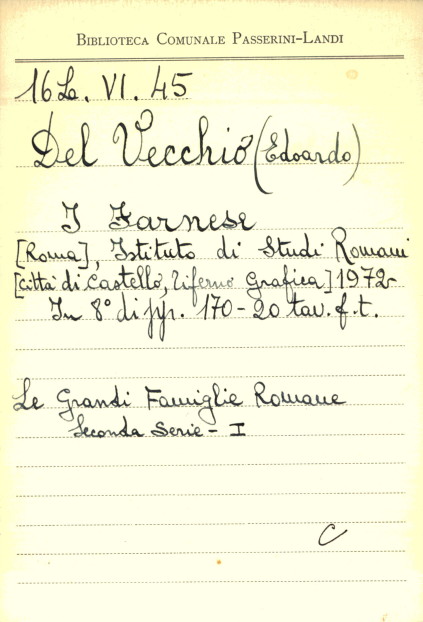 BIBLIOTECA COMUNALE PASSERINI-LANDI
16 L. VI. 45
Del Vecchio (Edoardo)
I Farnese
[Roma], Istituto di Studi Romani
[Città di Castello, Tiferno Grafica] 1972
In 8° di pp. 170 - 20 tav. f. t.
Le Grandi Famiglie Romane
Seconda Serie - I
C